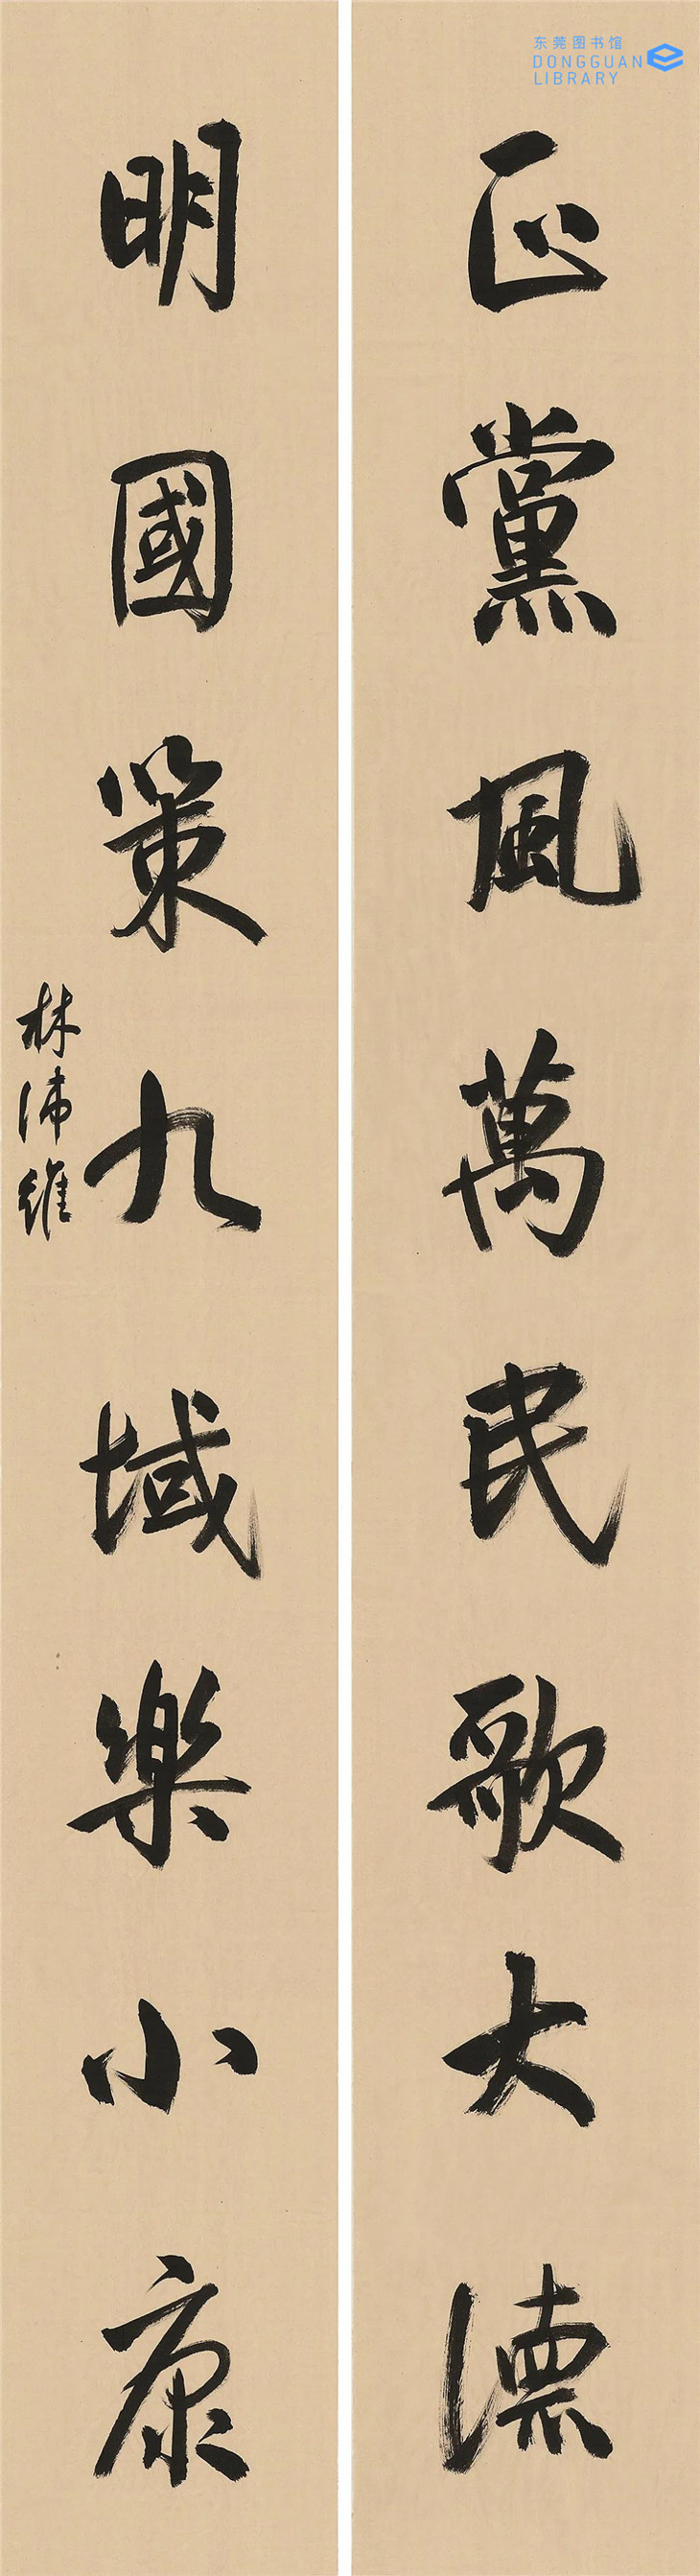 东莞图书馆
DONGGUAN
LIBRARY
正黨風萬民歌大德
明國策九域樂小康
林沛維